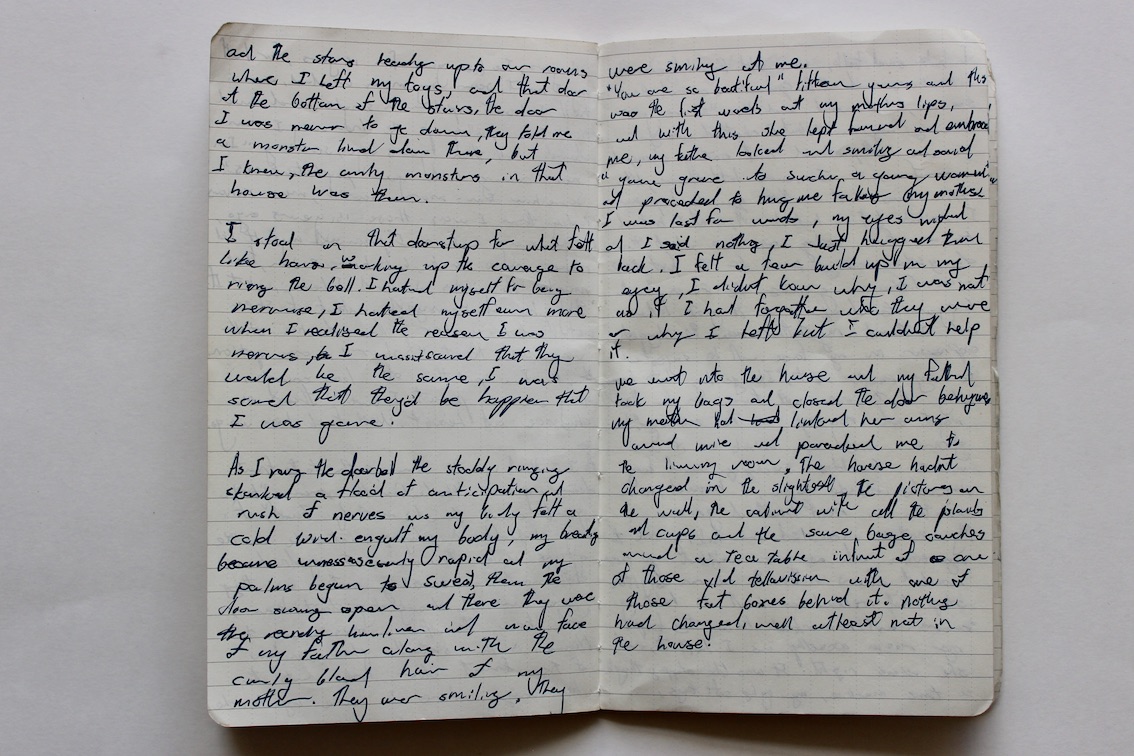 and the stairs leading up to our rooms
where I left my toys, and that door
at the bottom of the stairs, the door
I was never to go down, they told me
a monster lived down there, but
I knew, the only monsters in that
house was them.
I stood on that doorstep for what felt
like hours, working up the courage to
ring the bell. I hated myself for being
nervouse, I hatred myself even more
when I realised the reason I was
nervous, I was scared that they
would be the same, I was
scared that they'd be happier that
I was gone.
As I rung the doorbell the ringing
a flood of anticipation and
rush of nerves as my body felt a
cold wind engulf my body, my breathing
became unnessesecarly rapid and my
palms began to sweat, then the
door swung open and there they were
the face
of my father along with the
curly blond hair of my
mother. They were smiling, they
were smiling at me.
"You are so beatiful" fifteen years and this
was the first words out my mothers lips,
and with this she lept forward and embraced
me, my father looked and smiling and said
"youve grown to such a young women"
and proceded to hug me my mother
I was lost for words, my eyes
and I said nothing, I just hugged them
back. I felt a tear build up in my
eyes, I didnt know why, I was not
as if I had forgotten who they were
or why I left but I couldnt help
it.
we went into the house and my father
took my bags and closed the door
my mother had linked her arms
around mine and paraded me to
the living room, The house hadnt
changed in the slightest, the pictures on
the wall, the cabinet with all the plants
and cups and the same couches
around a tea table infrunt of one
of those old tellavission with one of
those fat boxes behind it. nothing
had changed, well atleast not in
the house.